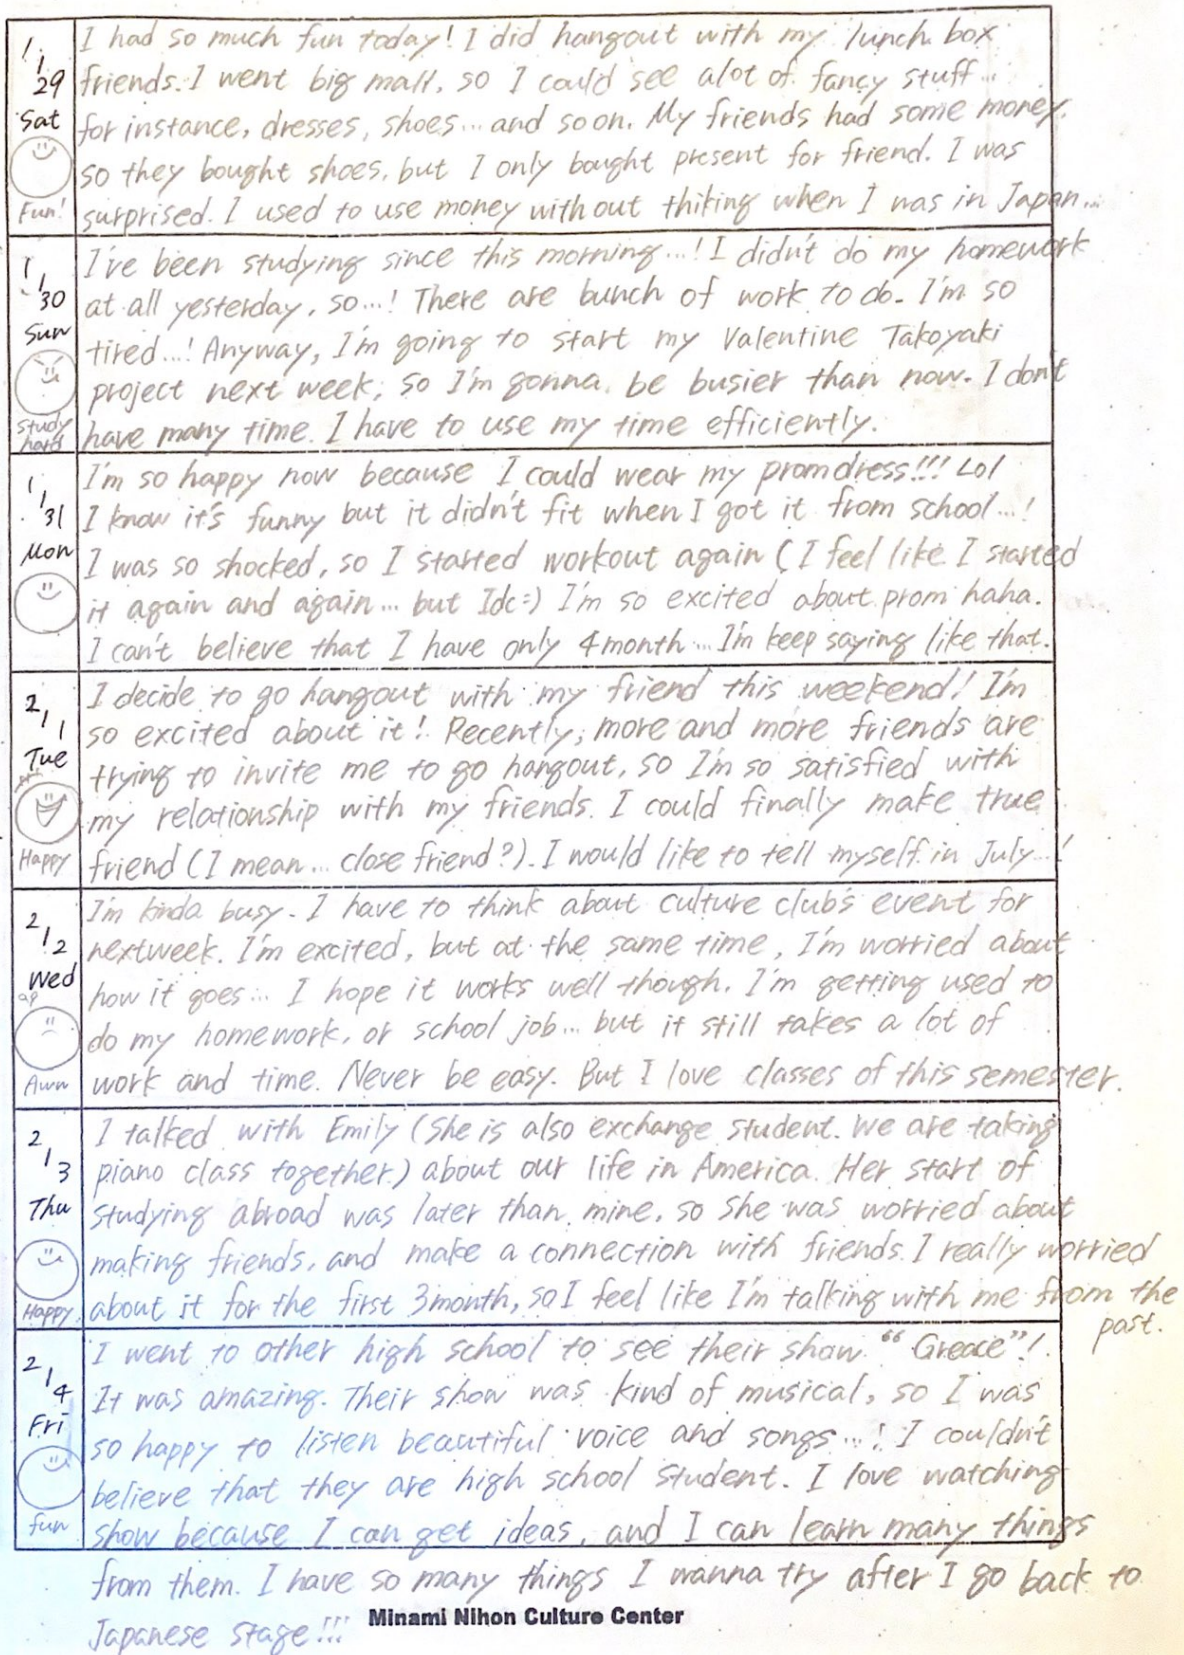 1/29
Sat
Fun!
I had so much fun today! I did hangout with my lunch box
friends. I went big mall, so I could see alot of fancy stuff...
for instance, dresses, shoes... and so on. My friends had some money,
so they bought shoes, but I only bought present for friend. I was
surprised. I used to use money without thiking when I was in Japan...
1/30
Sun
study
hard
I've been studying since this morning...! I didn't do my homework
at all yesterday, so...! There are bunch of work to do. I'm so
tired...! Anyway, I'm going to start my Valentine Takoyaki
project next week, so I'm gonna be busier than now. I don't
have many time. I have to use my time efficiently.
1/31
Mon
I'm so happy now because I could wear my promdress!!! Lol
I know it's funny but it didn't fit when I got it from school...!
I was so shocked, so I started workout again (I feel like I started
it again and again... but Idc=) I'm so excited about prom haha.
I can't believe that I have only 4month... I'm keep saying like that.
2/1
Tue
Happy
I decide to go hangout with my friend this weekend! I'm
so excited about it! Recently, more and more friends are
trying to invite me to go hangout, so I'm so satisfied with
my relationship with my friends. I could finally make true
friend (I mean... close friend?). I would like to tell myself in July...!
2/2
Wed
Awn
I'm kinda busy. I have to think about culture club's event for
nextweek. I'm excited, but at the same time, I'm worried about
how it goes... I hope it works well though. I'm getting used to
do my homework, or school job... but it still takes a lot of
work and time. Never be easy. But I love classes of this semester.
2/3
Thu
Happy
I talked with Emily (She is also exchange student. We are taking
piano class together.) about our life in America. Her start of
studying abroad was later than mine, so she was worried about
making friends, and make a connection with friends. I really worried
about it for the first 3month, so I feel like I'm talking with me from the
past.
2/4
Fri
fun
I went to other high school to see their show "Greace"!
It was amazing. Their show was kind of musical, so I was
so happy to listen beautiful voice and songs...! I couldn't
believe that they are high school student. I love watching
show because I can get ideas, and I can learn many things
from them. I have so many things I wanna try after I go back to
Japanese stage!!!
Minami Nihon Culture Center